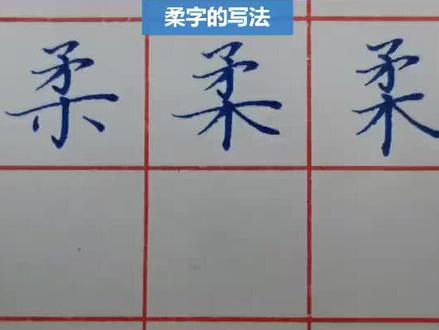 柔字的写法
柔 柔 柔